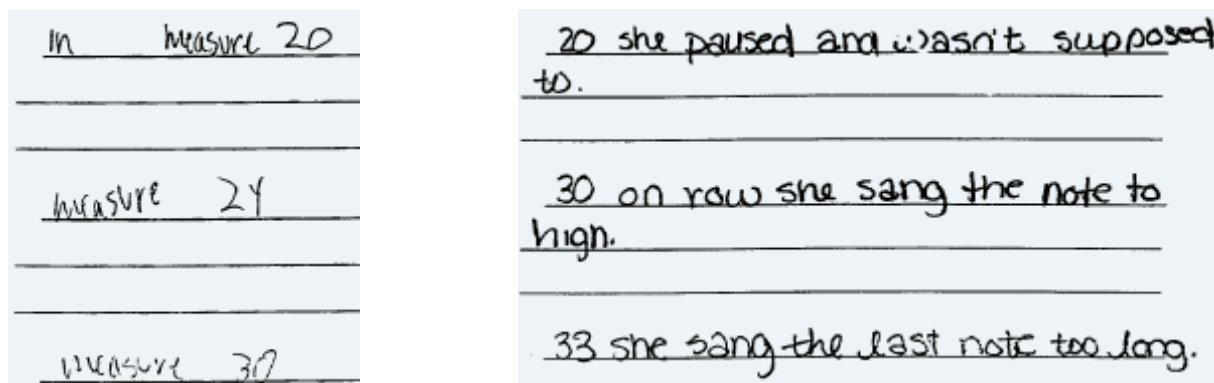 In measure 20
measure 24
measure 30
20 she paused and wasn't supposed
to.
30 on row she sang the note to
high.
33 she sang the last note too long.